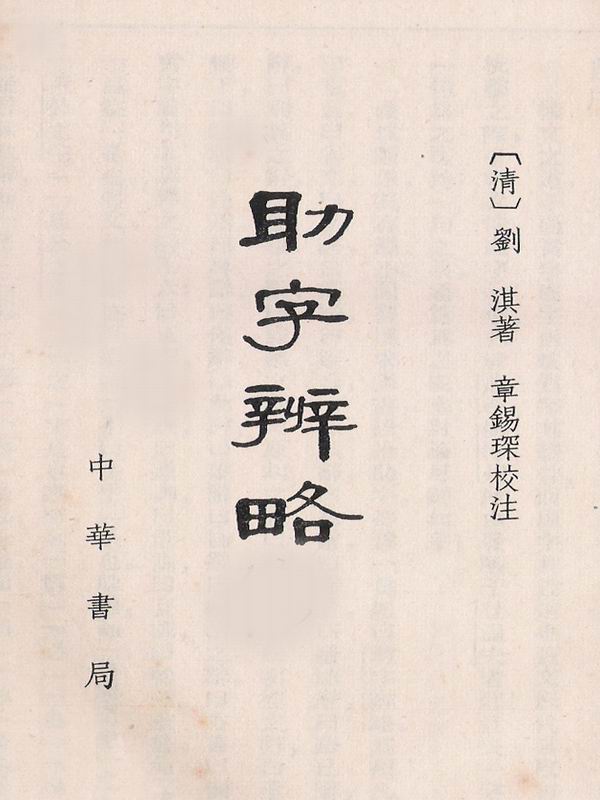 〔清〕劉　淇著　章錫琛校注
助字辨略
中華書局